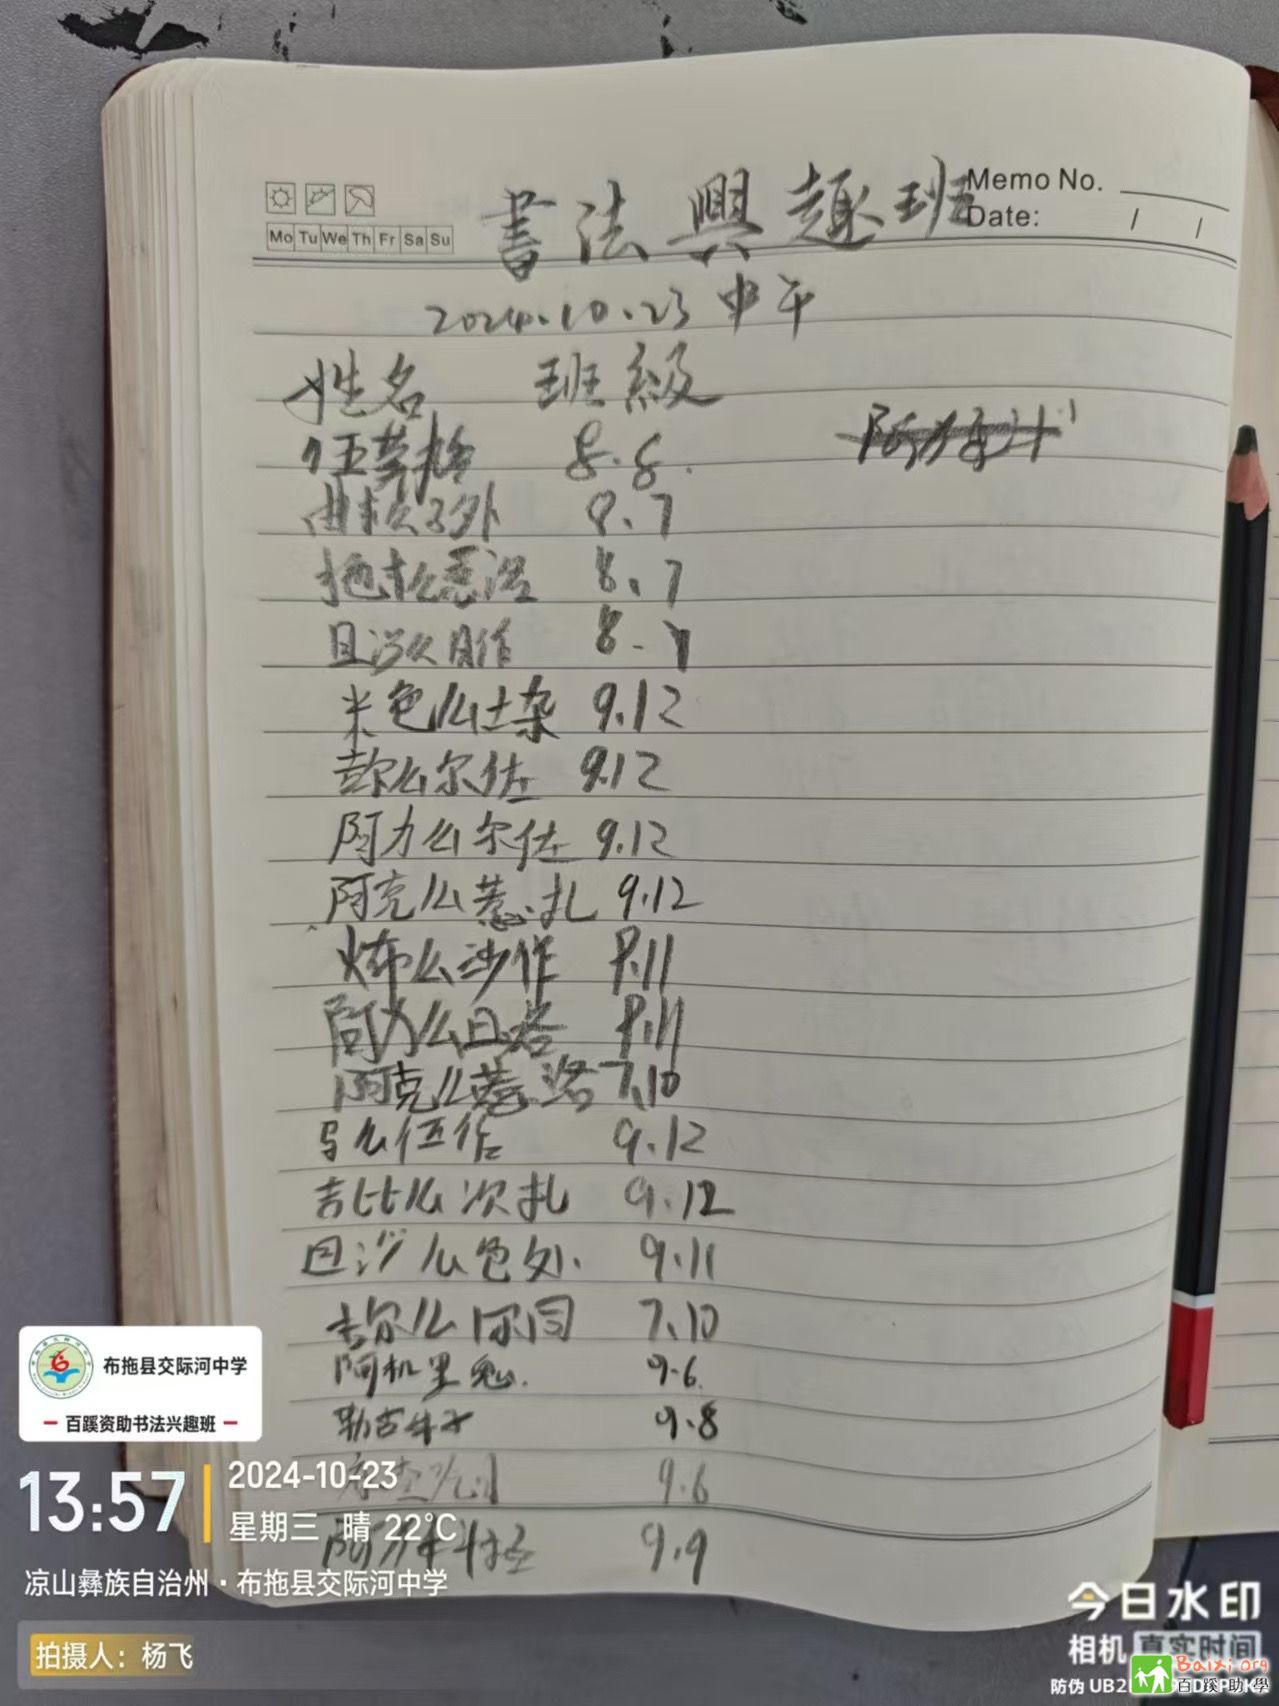 Memo No.
Date: / /
Mo Tu We Th Fr Sa Su
書法興趣班
2024.10.23 中午
姓名 班級
8.8.
8.7
8.7
8-7
米色么土杂 9.12
么尔住 9.12
阿力么尔住 9.12
阿克么惹扎 9.12
么沙作 9.11
阿力么日谷 9.11
阿克么惹洛 7.10
马么伍作 9.12
吉比么次扎 9.12
日沙么色处. 9.11
吉尔么尔同 7.10
阿机里鬼. 9.6.
勒古牛子 9.8
9.6
9.9
布拖县交际河中学
百蹊资助书法兴趣班
13:57
2024-10-23
星期三 晴 22℃
凉山彝族自治州·布拖县交际河中学
拍摄人：杨飞
今日水印
相机 真实时间
防伪 UB2
Baixi.org
百蹊助學